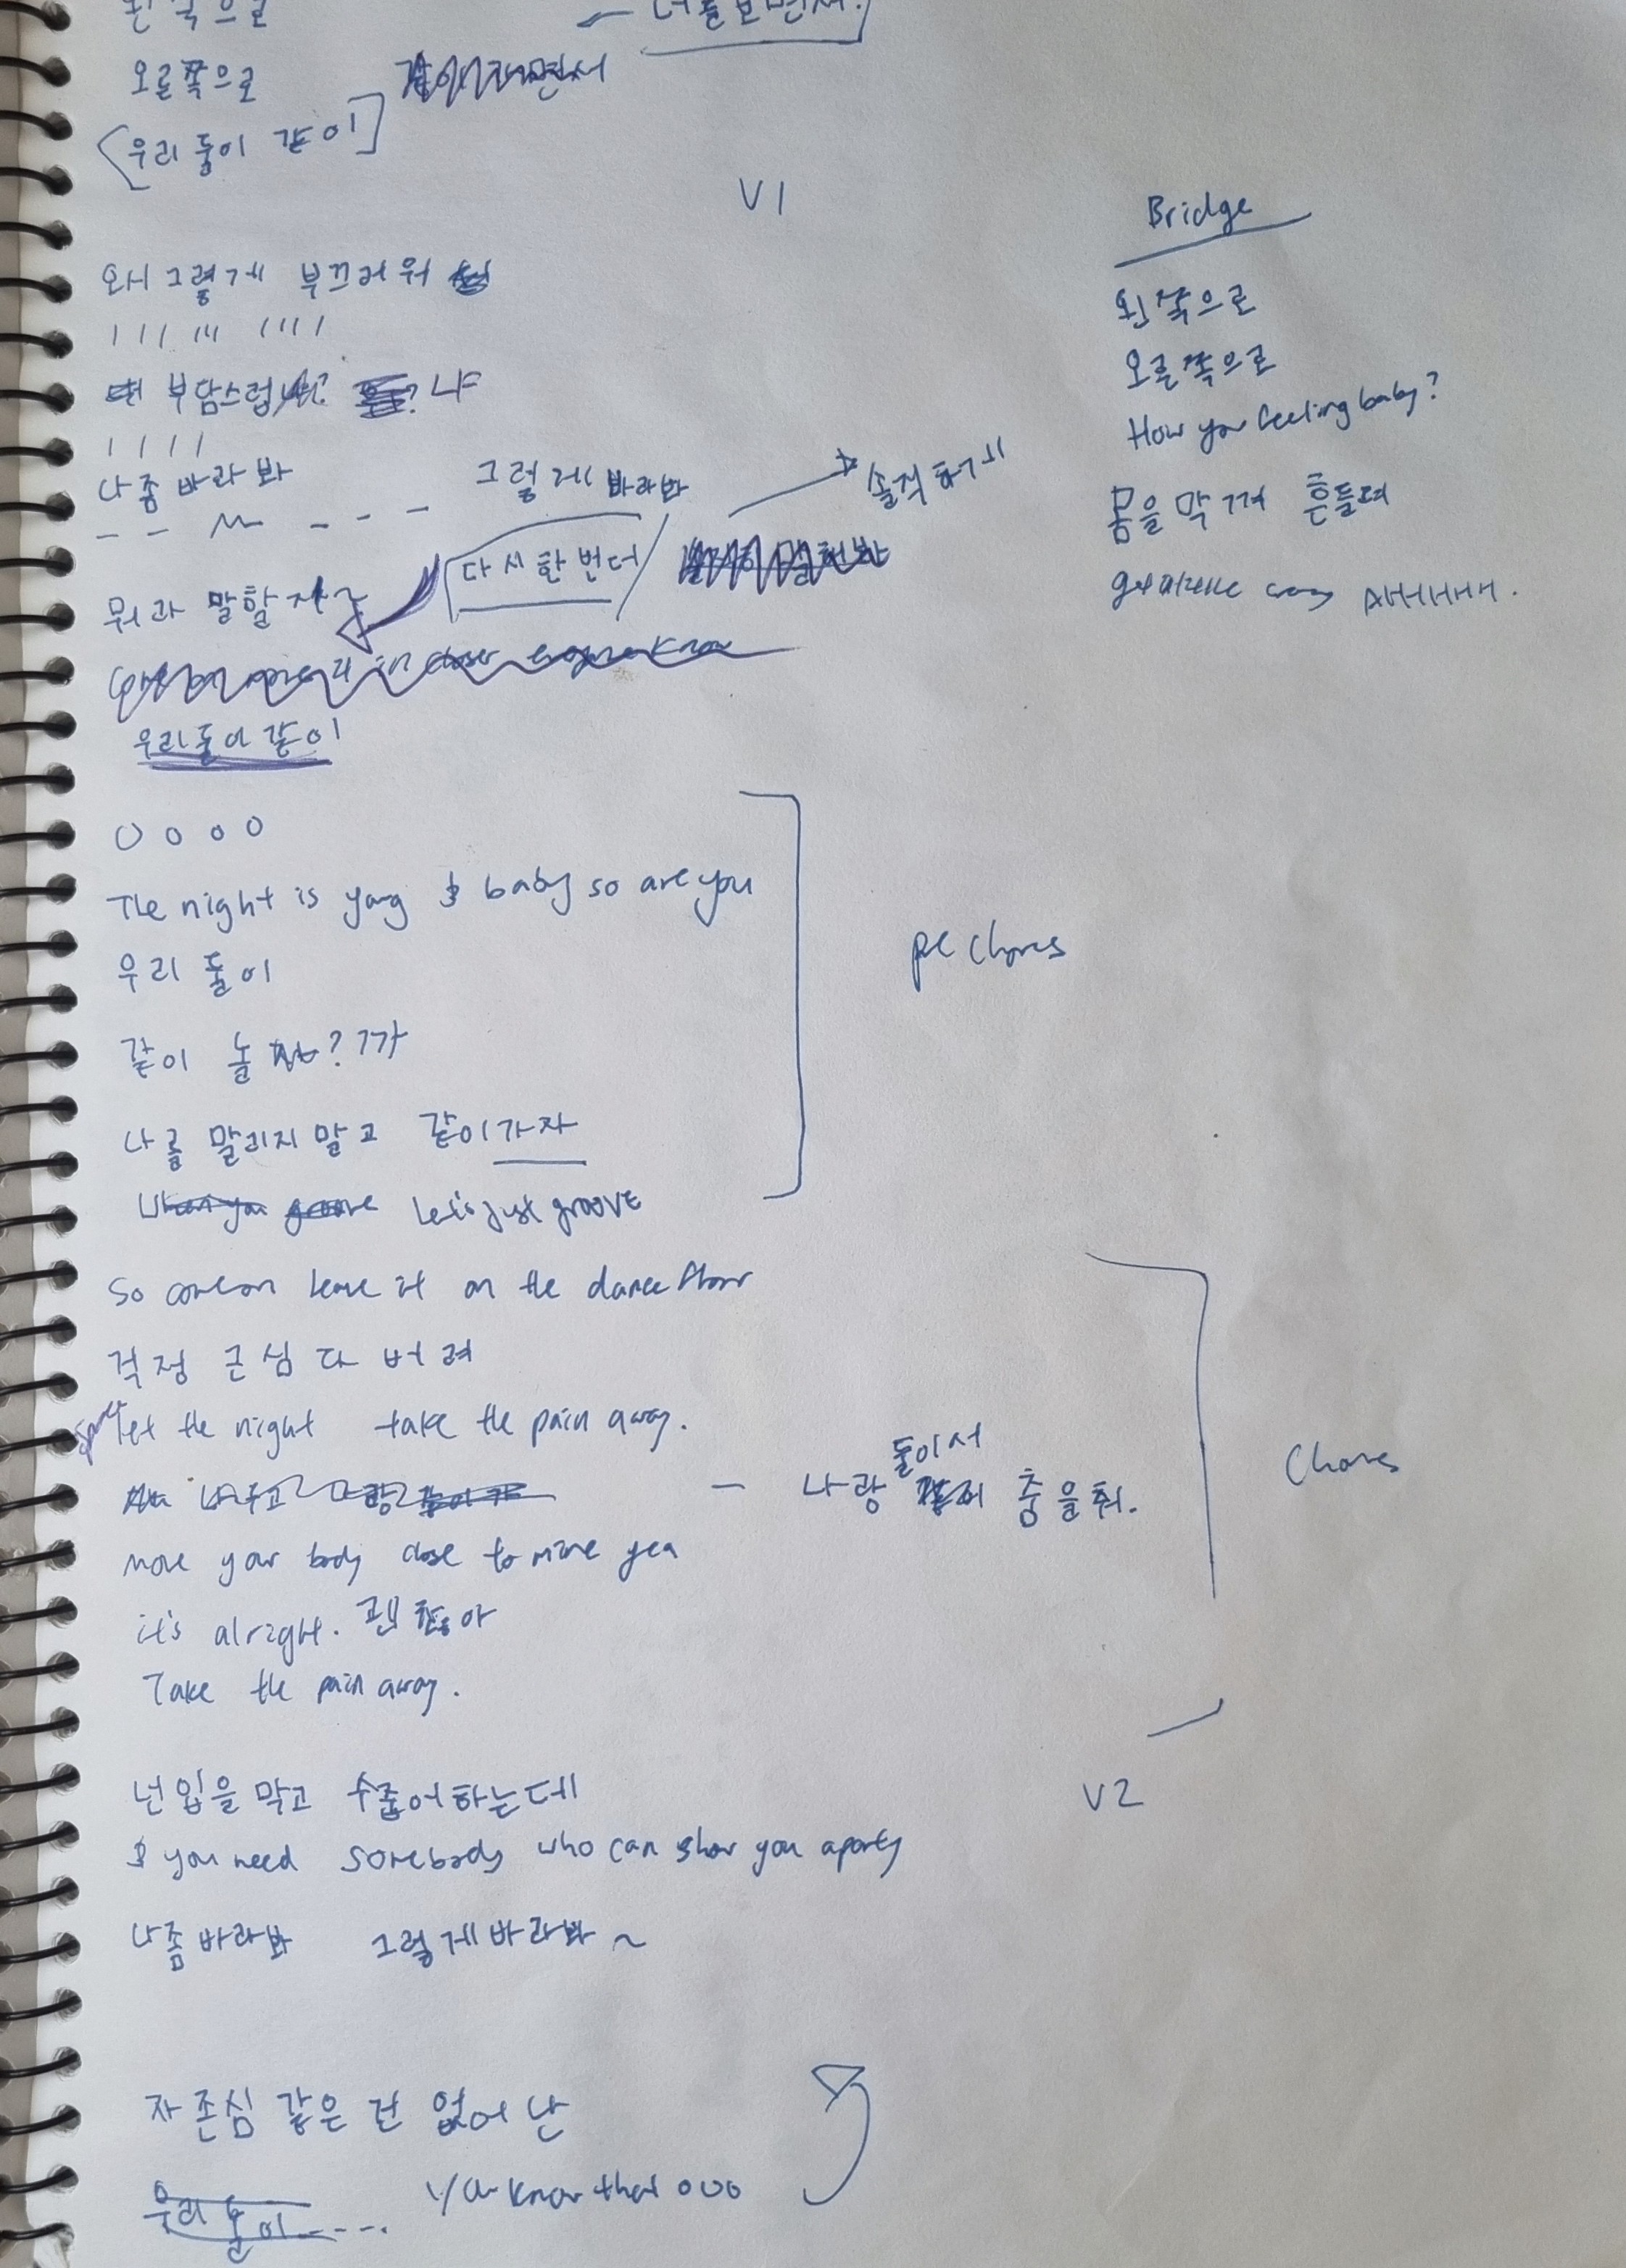 왼쪽으로
너를 보면서!
오른쪽으로
[우리 둘이 같이]
V1
Bridge
왜 그렇게 부끄러워
부담스럽 냐
나좀 바라봐
그렇게 바라봐
솔직하게
다시 한번더
뭐라 말할지
우리둘이 같이
왼쪽으로
오른쪽으로
How you feeling baby?
몸을 막 껴 흔들려
crazy AHHHHH.
O o o o
The night is yong & baby so are you
우리 둘이
같이 놀?까
나를 말리지 말고 같이가자
Let's just groove
pre Chorus
So come on leave it on the dance floor
걱정 근심 다 버려
let the night take the pain away.
- 나랑 둘이서 춤을 춰.
move your body close to mine yea
it's alright. 괜찮아
Take the pain away.
Chorus
V2
넌 입을 막고 수줍어하는데
& you need somebody who can show you a party
나좀바라봐 그렇게바라봐~
자존심 같은 건 없어 난
우리 둘이----.
Ya know that ooo